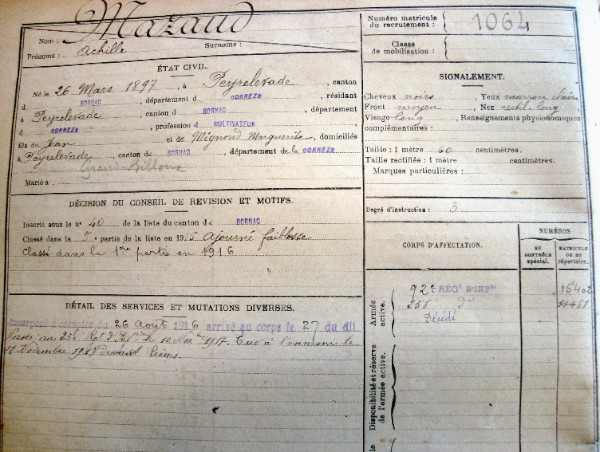 Mazaud
Nom :
Prénoms : Achille Surnoms :
Numéro matricule du recrutement : 1064
Classe de mobilisation :
ÉTAT CIVIL.
Né le 26 Mars 1897, à Peyrelevade, canton
d SORNAC, département d CORREZE, résidant
à Peyrelevade, canton d SORNAC, département
d CORREZE, profession d CULTIVATEUR
fils de Jean et de Mignond Marguerite, domiciliés
à Peyrelevade, canton de SORNAC, département de la CORREZE
Marié à
SIGNALEMENT.
Cheveux noirs, Yeux marron clair
Front moyen Nez rectil. long
Visage long Renseignements physionomiques
complémentaires :
Taille : 1 mètre 60 centimètres.
Taille rectifiée : 1 mètre centimètres.
Marques particulières :
Degré d'instruction : 3
DÉCISION DU CONSEIL DE REVISION ET MOTIFS.
Inscrit sous le n° 40 de la liste du canton d SORNAC
Classé dans la 5e partie de la liste en 1915 Ajourné faiblesse
Classé dans la 1re partie en 1916
DÉTAIL DES SERVICES ET MUTATIONS DIVERSES.
Incorporé à compter du 26 Août 1916 arrivé au corps le 27 du dit
1917. Tué à l'ennemi le
Décembre 1917 devant
CORPS D'AFFECTATION.
NUMÉROS
AU CONTRÔLE spécial.
MATRICULE OU DU répertoire.
Armée active.
92e REGt D'INFie
Décédé
Disponibilité et réserve de l'armée active.